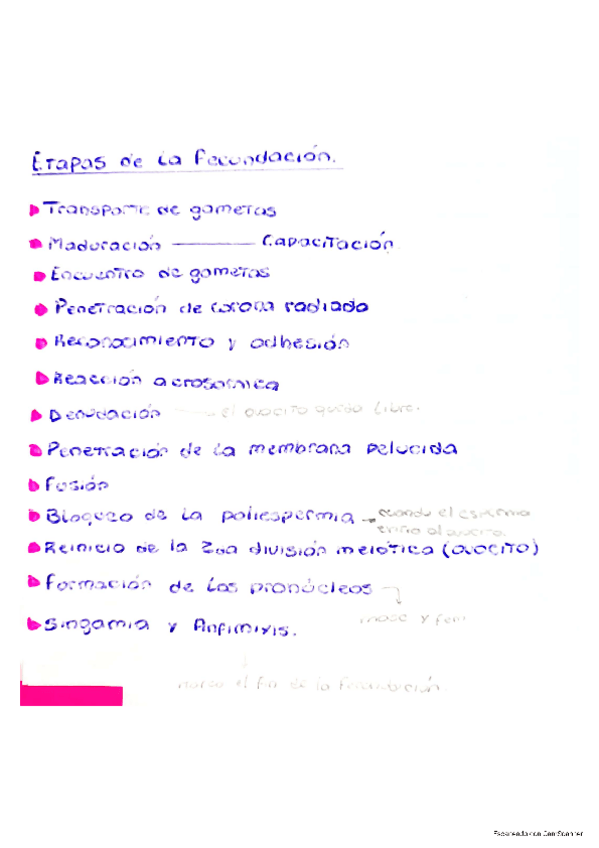 Etapas de la Fecundación.
Transporte de gametas
Maduración —— Capacitación
Encuentro de gametas
Penetración de corona radiada
Reconocimiento y adhesión
Reacción acrosomica
Denudación —— el ovocito queda libre.
Penetración de la membrana pelucida
Fusión
Bloqueo de la poliespermia → cuando el esperma
entra al ovocito.
Reinicio de la 2da división meiótica (ovocito)
Formación de los pronúcleos
masc y fem
Singamia y Anfimixis.
marca el fin de la Fecundación.
Escaneado con CamScanner